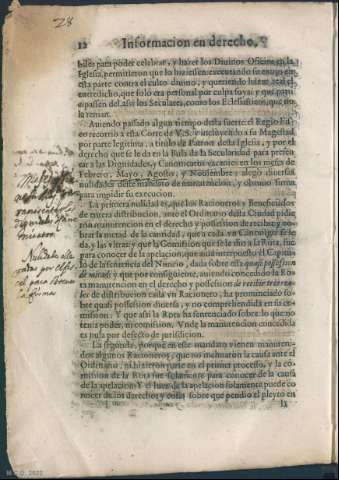 28
12 Informacion en derecho,
biles para poder celebrar, y hazer los Diuinos Oficios en la
Iglesia, permitieron que lo hiziessen executando su enojo en
esta parte contra el culto diuino, y queriendo hazer
entredicho, que solo era personal por culpa suya: y que participassen del, assi los Seculares, como los Eclesiasticos, que no
la tenian.
Auiendo passado algun tiempo desta suerte el Regio Fisco recorrió a esta Corte de V. S. y incluyendo a su Magestad
por parte legitima, a titulo de Patron desta Iglesia, y por el
derecho que se le da en la Bula de la Secularidad para presentar
a las Dignidades, y Canonicatos vacantes en los meses de
Febrero, Mayo, Agosto, y Nouiembre, alegó diuersas
nulidades deste mandato de manutencion, y obtuuo firma
para impidir su execucion.
La primera nulidad es, que los Racioneros y Beneficiados
de nueua distribucion, ante el Ordinario desta Ciudad pidieron manutencion en el derecho y possession de recibir y cobrar la metad de la cantidad, que a cada vn Canonigo se le
da, y las vezes: y que la Comission que se le dio a la Rota, fue
para conocer de la apelacion, que auia interpuesto el Capitulo
de la sentencia del Nuncio, dada sobre esta quasi possession
de metad: y que por consiguiente, auiendo concedido la Rota manutencion en el derecho y possession de recibir tres reales de distribucion cada vn Racionero, ha pronunciado sobre quasi possession diuersa, y no comprehendida en su comission: Y que assi la Rota ha sentenciado sobre lo que no
tenia poder, ni comission. Vnde la manutencion concedida
es nula por defecto de jurisdicion.
La segunda, porque en este mandato vienen manutenidos algunos Racioneros, que no incluaron la causa ante el
Ordinario, ni hizieron parte en el primer processo, y la comission de la Rota fue solamente para conocer de la causa
de la apelacion: Y el Iuez de la apelacion solamente puede conocer de los derechos y cosas sobre que pendió el pleyto en
la
Nulidades ale
gadas por el fis
cal para obtener
la firma
M.C.D. 2022